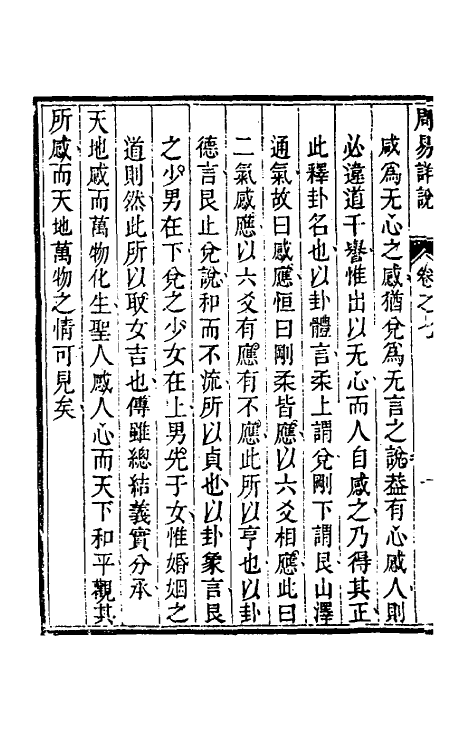 周易詳說 卷之七 一
咸爲无心之感猶兌爲无言之說葢有心感人則
必違道干譽惟出以无心而人自感之乃得其正
此釋卦名也以卦體言柔上謂兌剛下謂艮山澤
通氣故曰感應恒曰剛柔皆應以六爻相應此曰
二氣感應以六爻有應有不應此所以亨也以卦
德言艮止兌說和而不流所以貞也以卦象言艮
之少男在下兌之少女在上男先于女惟婚姻之
道則然此所以取女吉也傳雖總結義實分承
天地感而萬物化生聖人感人心而天下和平觀其
所感而天地萬物之情可見矣